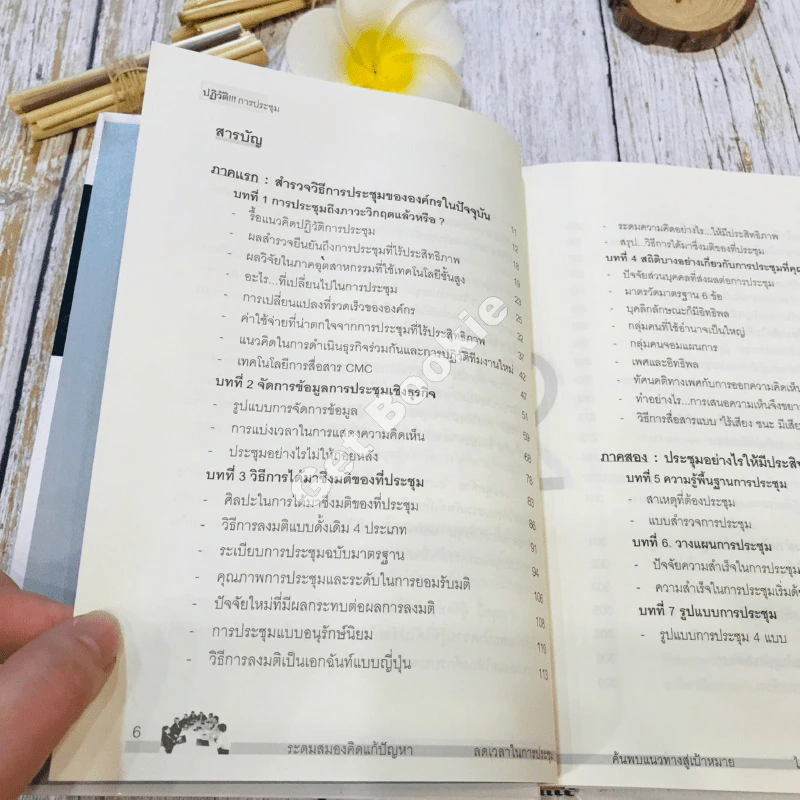 ปฏิวัติ!!! การประชุม
สารบัญ
ภาคแรก : สำรวจวิธีการประชุมขององค์กรในปัจจุบัน
บทที่ 1 การประชุมถึงภาวะวิกฤตแล้วหรือ ? 11
- รื้อแนวคิดปฏิวัติการประชุม 12
- ผลสำรวจยืนยันถึงการประชุมที่ไร้ประสิทธิภาพ 18
- ผลวิจัยในภาคอุตสาหกรรมที่ใช้เทคโนโลยีชั้นสูง 19
- อะไร...ที่เปลี่ยนไปในการประชุม 23
- การเปลี่ยนแปลงที่รวดเร็วขององค์กร 25
- ค่าใช้จ่ายที่น่าตกใจจากการประชุมที่ไร้ประสิทธิภาพ 32
- แนวคิดในการดำเนินธุรกิจร่วมกันและการปฏิวัติทีมงานใหม่ 37
- เทคโนโลยีการสื่อสาร CMC 42
บทที่ 2 จัดการข้อมูลการประชุมเชิงธุรกิจ 47
- รูปแบบการจัดการข้อมูล 51
- การแบ่งเวลาในการแสดงความคิดเห็น 59
- ประชุมอย่างไรไม่ให้ถอยหลัง 68
บทที่ 3 วิธีการได้มาซึ่งมติของที่ประชุม 78
- ศิลปะในการได้มาซึ่งมติของที่ประชุม 83
- วิธีการลงมติแบบดั้งเดิม 4 ประเภท 86
- ระเบียบการประชุมฉบับมาตรฐาน 91
- คุณภาพการประชุมและระดับในการยอมรับมติ 94
- ปัจจัยใหม่ที่มีผลกระทบต่อผลการลงมติ 106
- การประชุมแบบอนุรักษ์นิยม 108
- วิธีการลงมติเป็นเอกฉันท์แบบญี่ปุ่น 110
113
6
ระดมสมองคิดแก้ปัญหา ลดเวลาในการประชุม
- ระดมความคิดอย่างไร...ให้มีประสิทธิภาพ
- สรุป...วิธีการได้มาซึ่งมติของที่ประชุม
บทที่ 4 สถิติบางอย่างเกี่ยวกับการประชุมที่คุณ
- ปัจจัยส่วนบุคคลที่ส่งผลต่อการประชุม
- มาตรวัดมาตรฐาน 6 ข้อ
- บุคลิกลักษณะก็มีอิทธิพล
- กลุ่มคนที่ใช้อำนาจเป็นใหญ่
- กลุ่มคนจอมเผด็จการ
- เพศและอิทธิพล
- ทัศนคติทางเพศกับการออกความคิดเห็น
- ทำอย่างไร...การเสนอความเห็นจึงขยาย
- วิธีการสื่อสารแบบ "ไร้เสียง ชนะ มีเสีย
ภาคสอง : ประชุมอย่างไรให้มีประสิ
บทที่ 5 ความรู้พื้นฐานการประชุม
- สาเหตุที่ต้องประชุม
- แบบสำรวจการประชุม
บทที่ 6. วางแผนการประชุม
- ปัจจัยความสำเร็จในการประชุม
- ความสำเร็จในการประชุมเริ่มต้
บทที่ 7 รูปแบบการประชุม
- รูปแบบการประชุม 4 แบบ
ค้นพบแนวทางสู่เป้าหมาย
Get Bookie